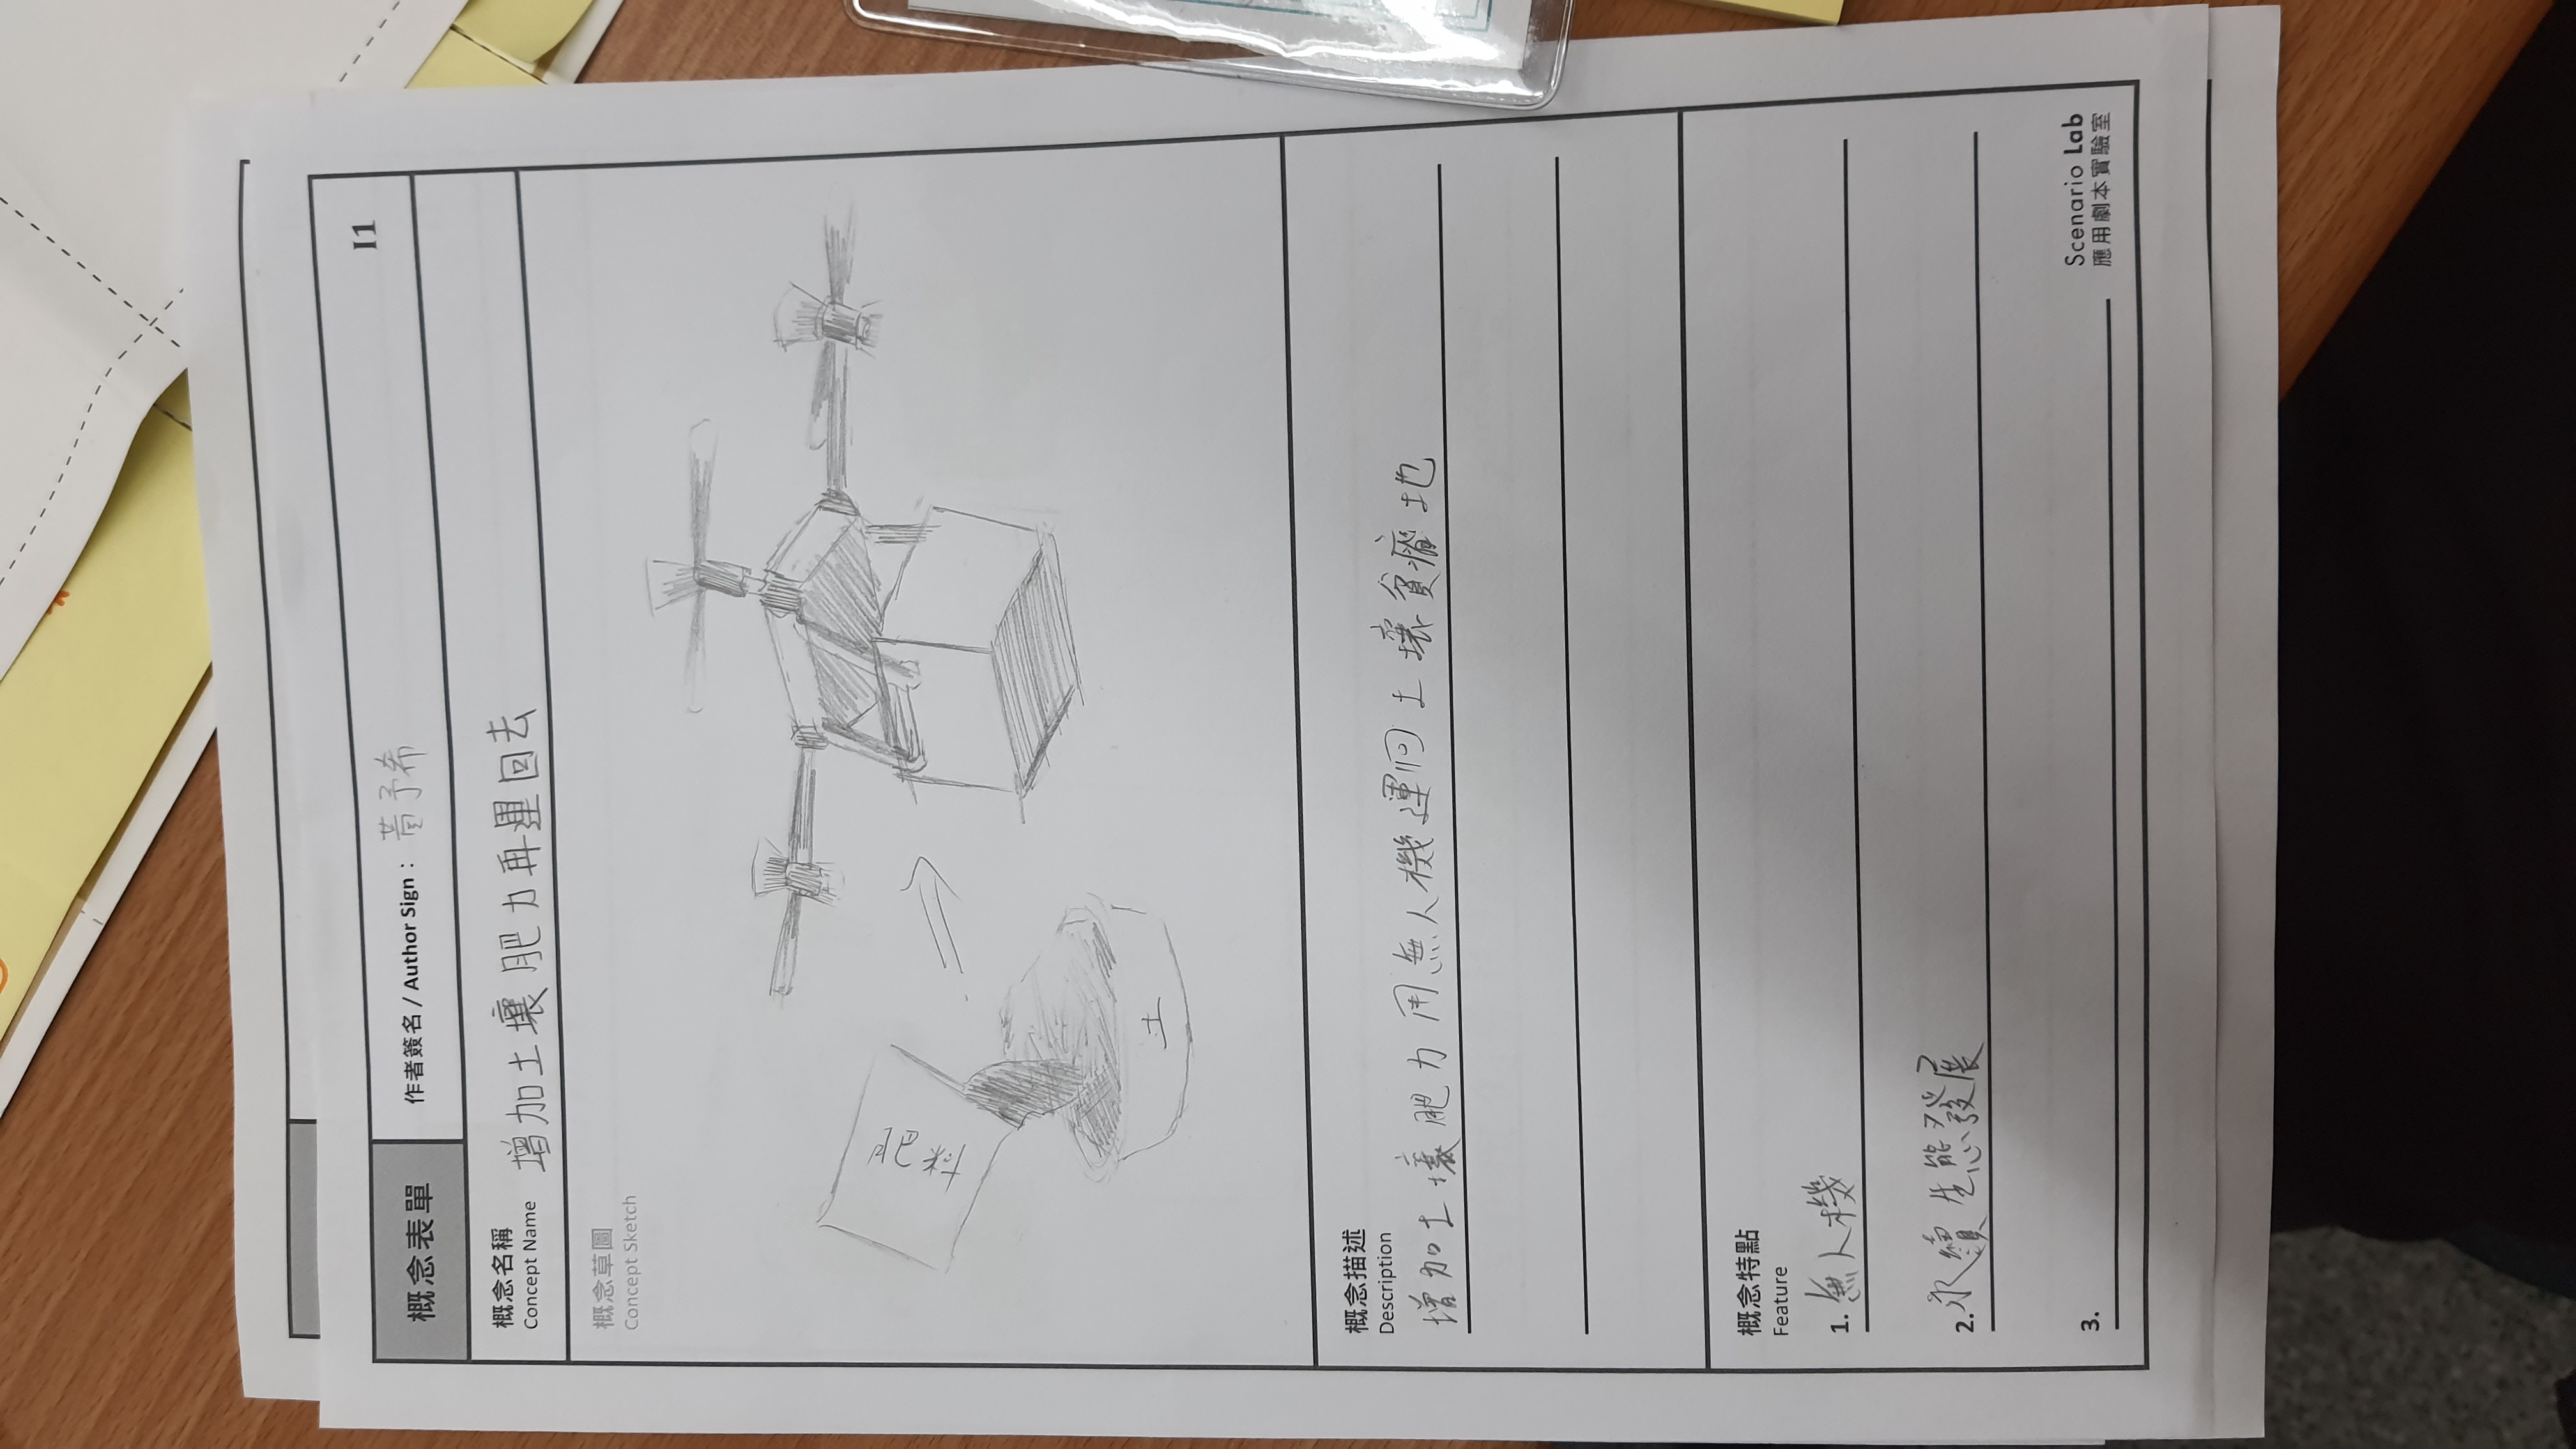 I1
概念表單
作者簽名 / Author Sign：黃予希
概念名稱
Concept Name
增加土壤肥力再運回去
概念草圖
Concept Sketch
肥料
土
概念描述
Description
增加土壤肥力用無人機運回土壤貧瘠地
概念特點
Feature
1. 無人機
2. 永續生態發展
3.
Scenario Lab
應用劇本實驗室